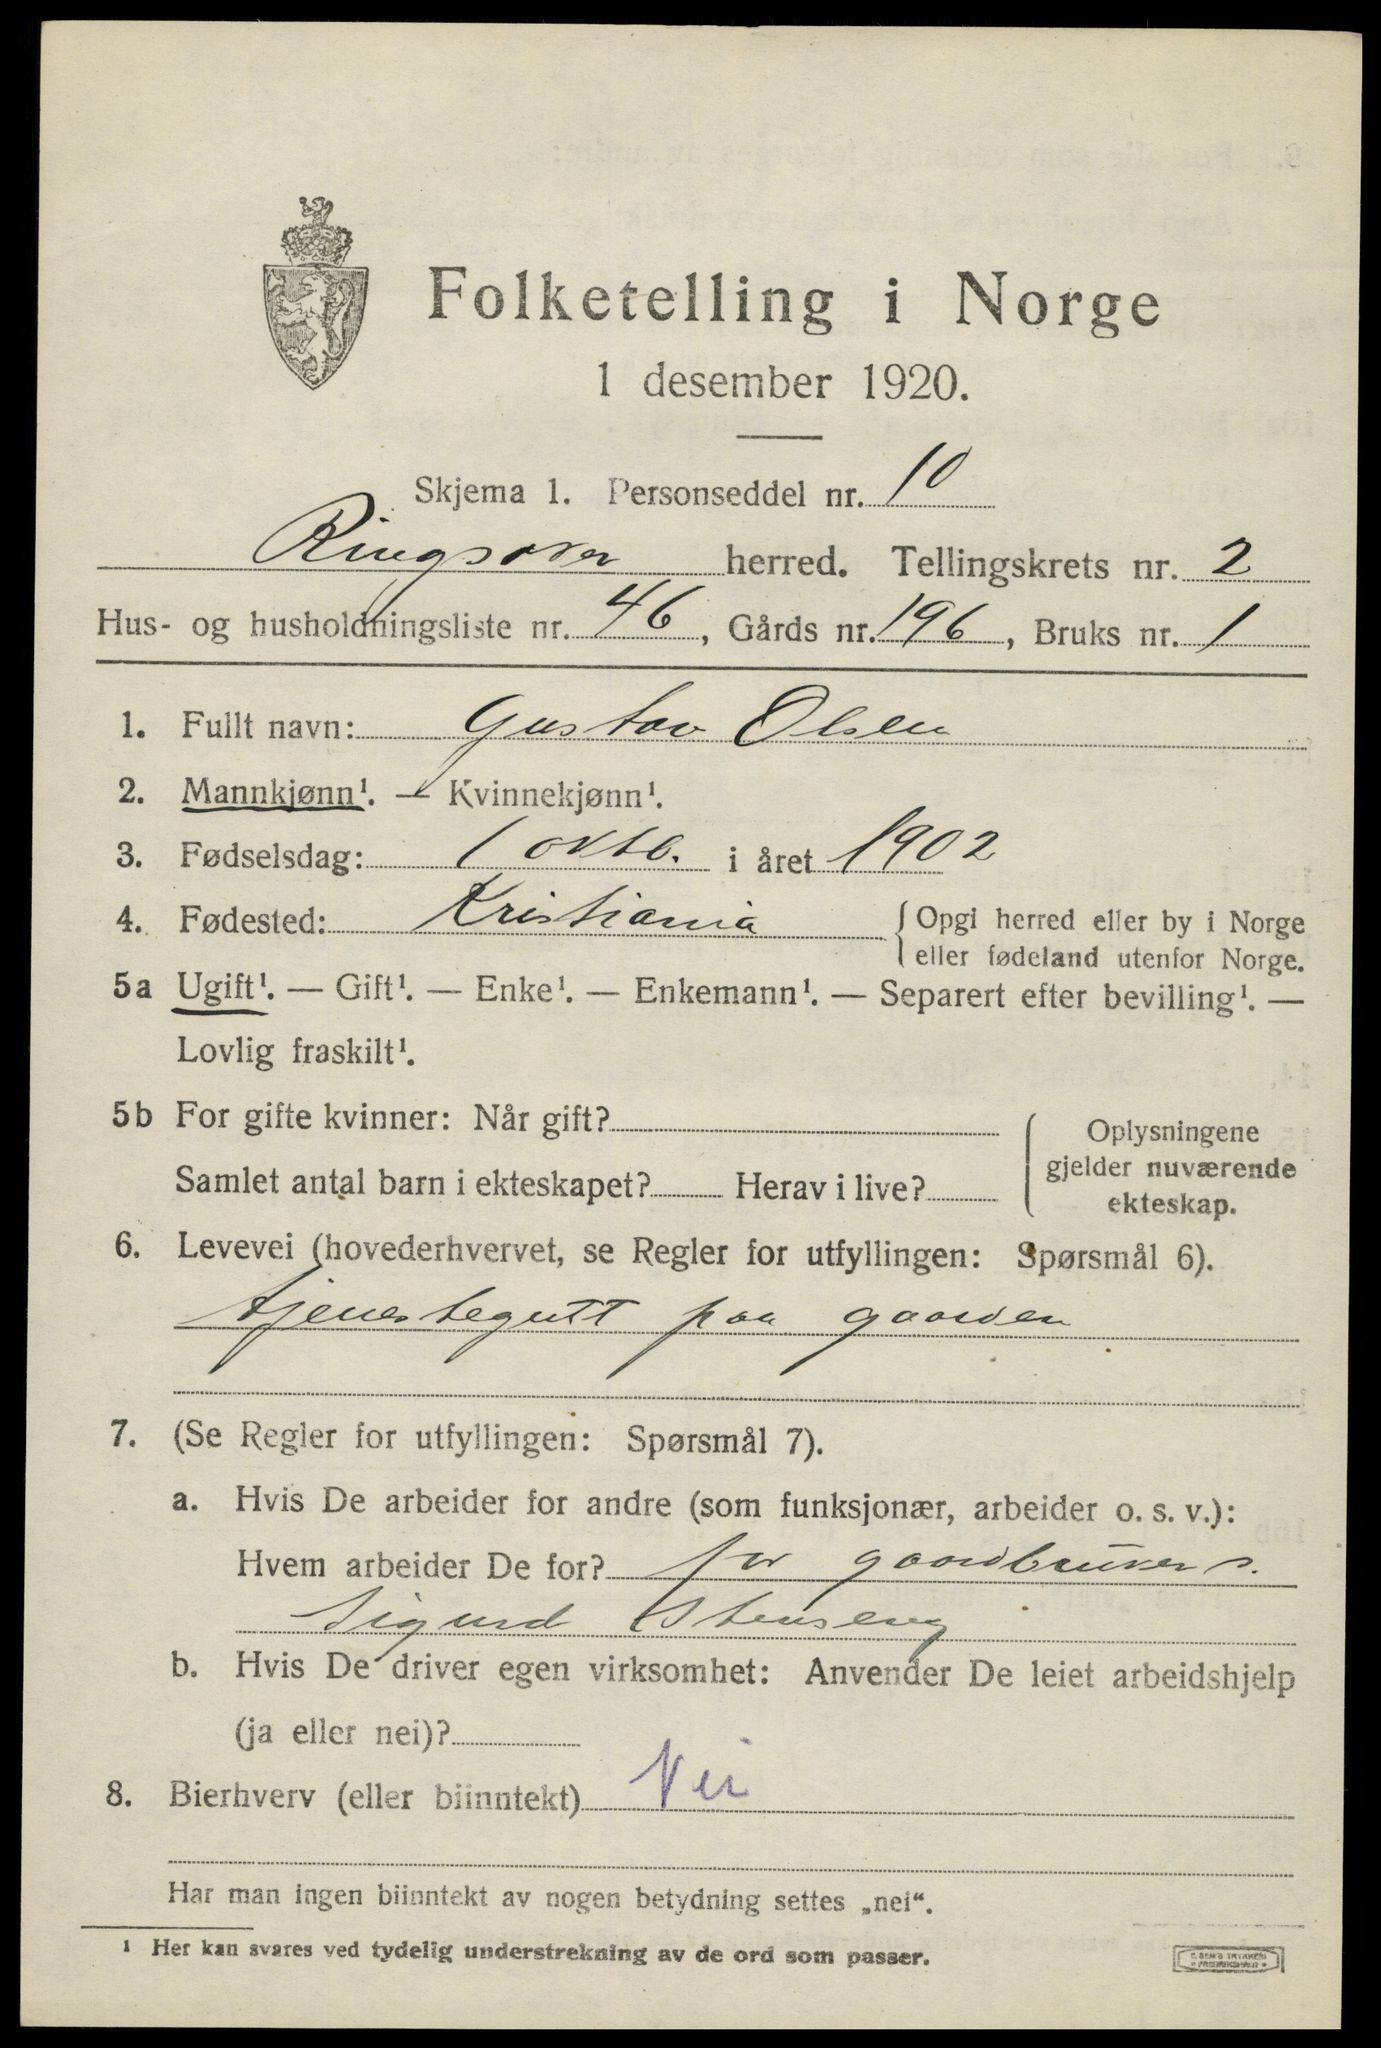 Folketelling i Norge
1 desember 1920.
Skjema 1. Personseddel nr. 10
Ringsaker herred. Tellingskrets nr. 2
Hus- og husholdningsliste nr. 46, Gårds nr. 196, Bruks nr. 1
1. Fullt navn: Gustav Olsen
2. Mannkjønn¹. — Kvinnekjønn¹.
3. Fødselsdag: 1 oktb. i året 1902
4. Fødested: Kristiania { Opgi herred eller by i Norge
eller fødeland utenfor Norge.
5a Ugift¹. — Gift¹. — Enke¹. — Enkemann¹. — Separert efter bevilling¹. —
Lovlig fraskilt¹.
5b For gifte kvinner: Når gift?
Samlet antal barn i ekteskapet? Herav i live?
Oplysningene
gjelder nuværende
ekteskap.
6. Levevei (hovederhvervet, se Regler for utfyllingen: Spørsmål 6).
tjenestegutt paa gaarden
7. (Se Regler for utfyllingen: Spørsmål 7).
a. Hvis De arbeider for andre (som funksjonær, arbeider o. s. v.):
Hvem arbeider De for? for gaardbruker
Sigurd Stenseng
b. Hvis De driver egen virksomhet: Anvender De leiet arbeidshjelp
(ja eller nei)?
8. Bierhverv (eller biinntekt) Nei
Har man ingen biinntekt av nogen betydning settes „nei“.
¹ Her kan svares ved tydelig understrekning av de ord som passer.